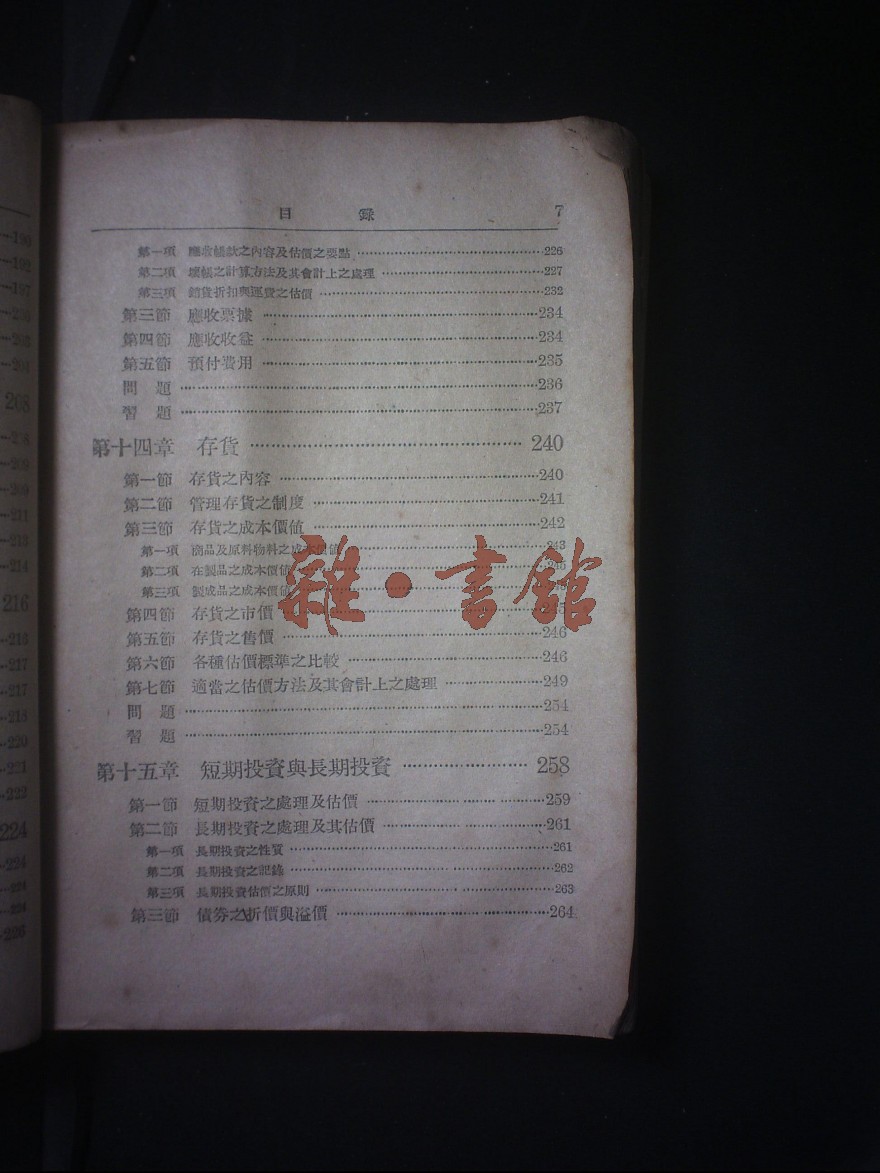 目 錄 7
第一項 應收帳款之內容及估價之要點 226
第二項 壞帳之計算方法及其會計上之處理 227
第三項 銷貨折扣與運費之估價 232
第三節 應收票據 234
第四節 應收收益 234
第五節 預付費用 235
問 題 236
習 題 237
第十四章 存貨 240
第一節 存貨之內容 240
第二節 管理存貨之制度 241
第三節 存貨之成本價值 242
第一項 商品及原料物料之成本價值 243
第二項 在製品之成本價值
第三項 製成品之成本價值
第四節 存貨之市價 245
第五節 存貨之售價 246
第六節 各種估價標準之比較 246
第七節 適當之估價方法及其會計上之處理 249
問 題 254
習 題 254
第十五章 短期投資與長期投資 258
第一節 短期投資之處理及估價 259
第二節 長期投資之處理及其估價 261
第一項 長期投資之性質 261
第二項 長期投資之記錄 262
第三項 長期投資估價之原則 263
第三節 債券之折價與溢價 264
雜·書館
190
192
197
208
209
211
213
214
216
216
217
217
218
220
221
222
224
224
224
224
226